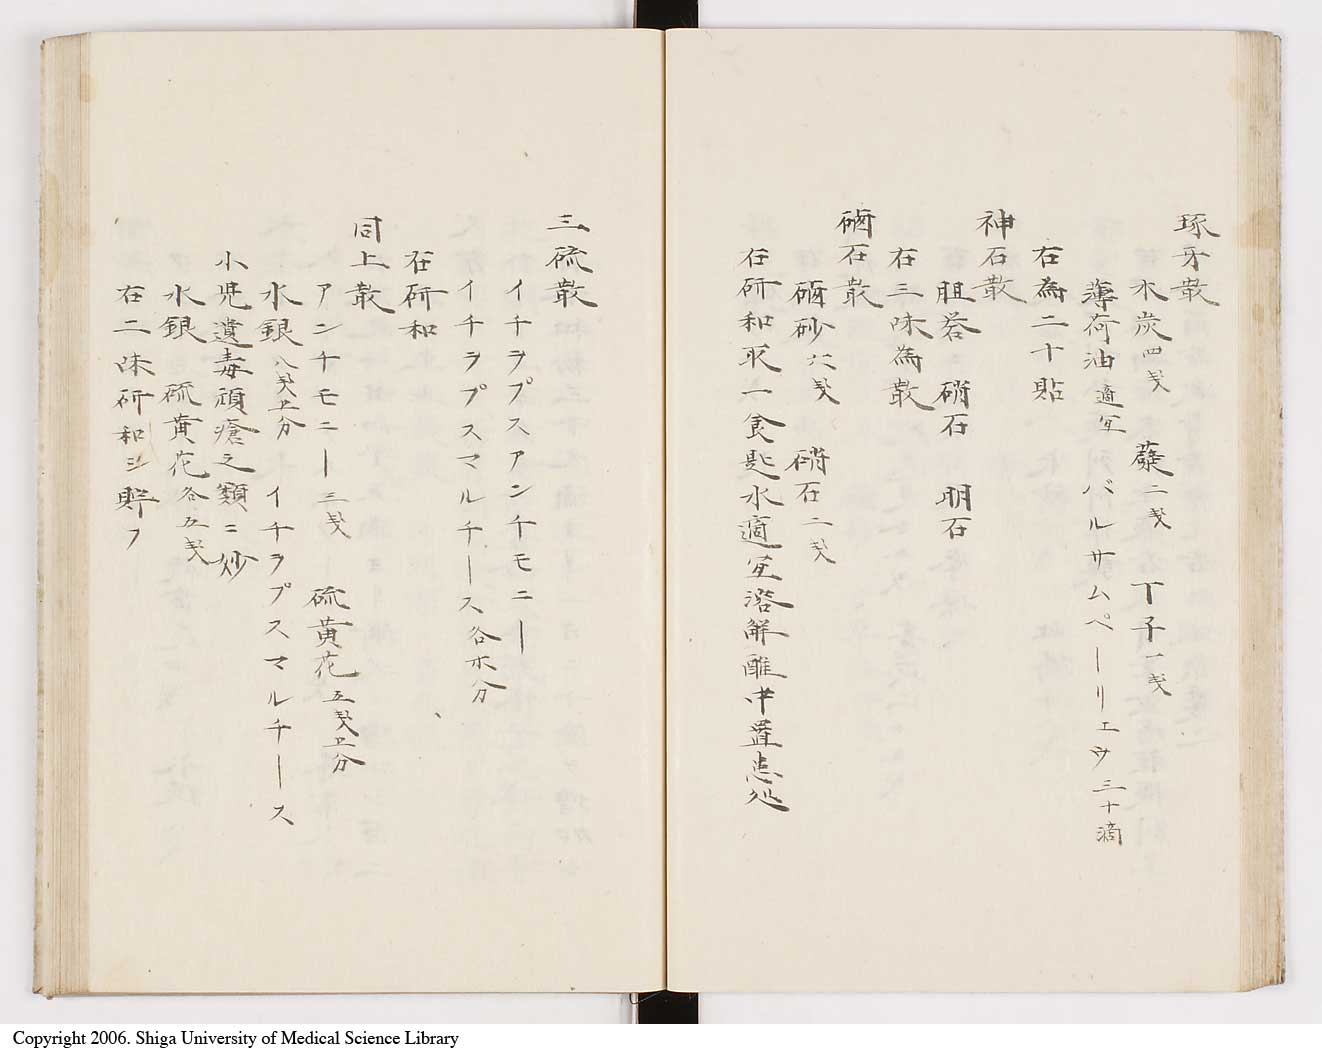 琢牙散
木炭四戔　蘗二戔　丁子一戔
薄荷油適宜　バルサムペーリュサ三十滴
右為二十貼
神石散
胆礬　硝石　明石
右三味為散
硇石散
硇砂六戔　硝石二戔
右研和取一食匙水適宜溶解醮巾置患処
三硫散
イチヲプスアンチモニー
イチヲプスマルチース各木分
右研和
同上散
アンチモニー三戔　硫黄花五戔五分
水銀八戔五分　イチヲプスマルチース
小児遺毒頑瘡之類ニ妙
水銀　硫黄花各五戔
右二味研和シ貯フ
Copyright 2006. Shiga University of Medical Science Library